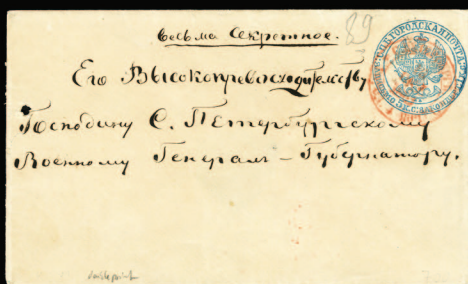 весьма Секретное.
89
Его Высокопревосходительству
Господину С. Петербургскому
Военному Генералъ-Губернатору.